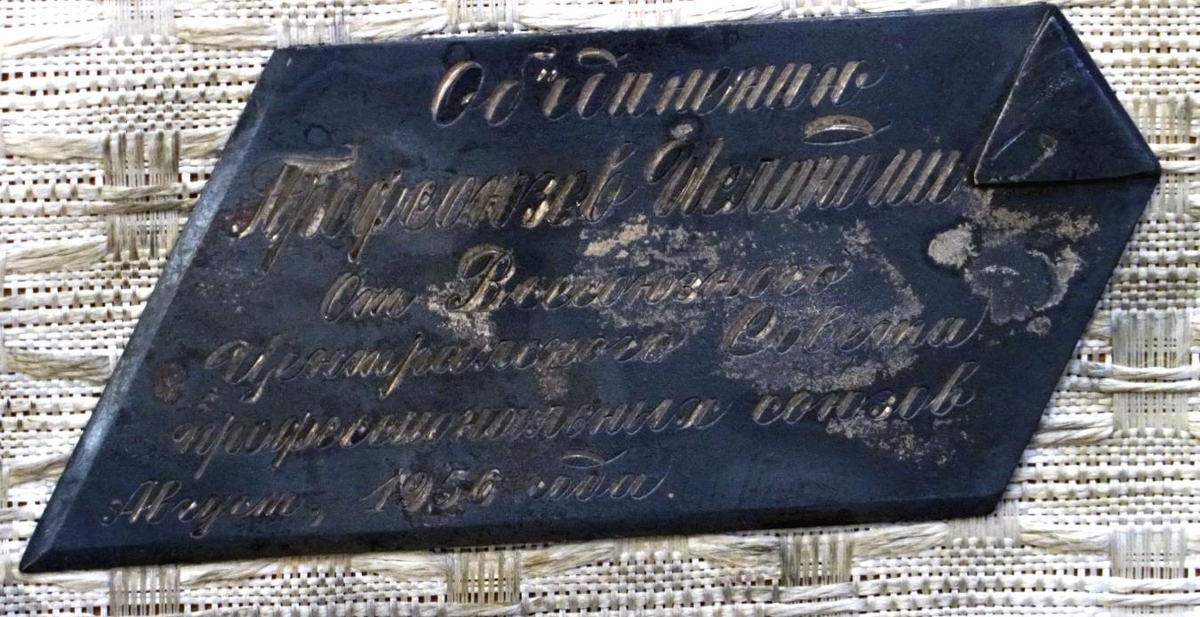 Об"единению
Профсоюзов Исландии
От Всесоюзного
Центрального Совета
профессиональных союзов
Август, 1956 года.